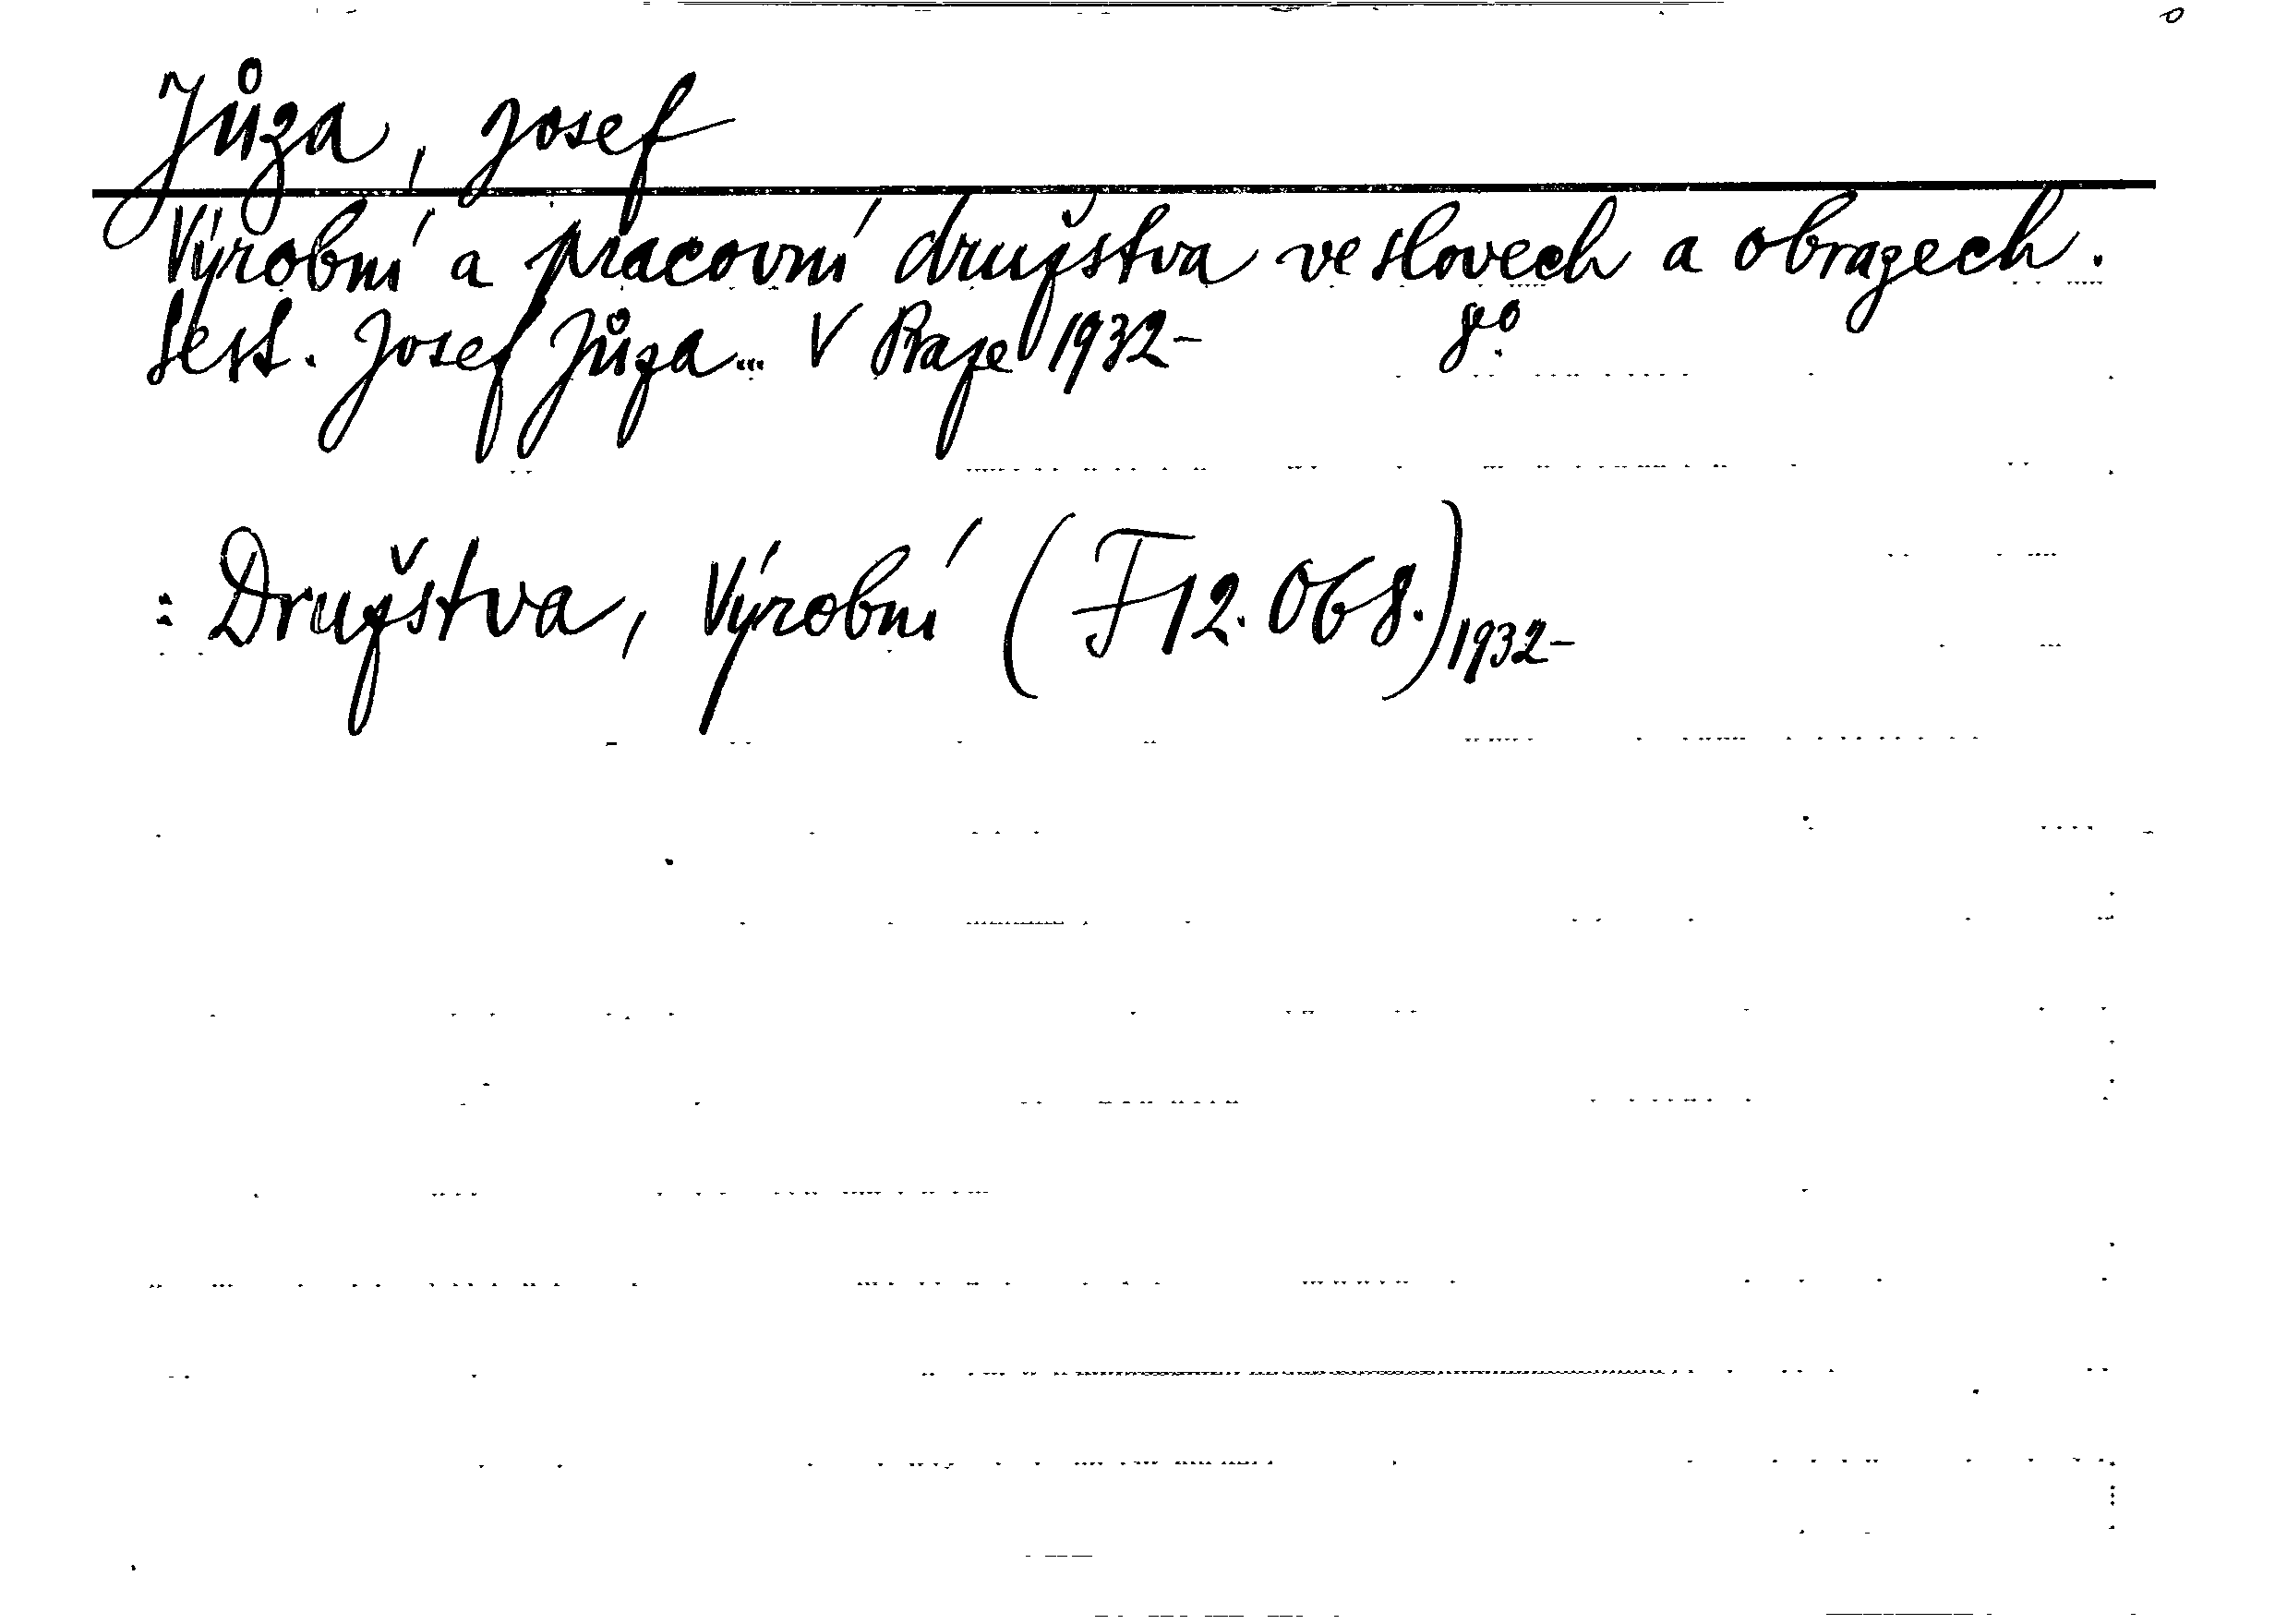 Jůza, Josef
Výrobní a pracovní družstva ve slovech a obrazech.
Sest. Josef Jůza... V Praze 1932- 8°.
: Družstva, Výrobní (F12.068.) 1932-